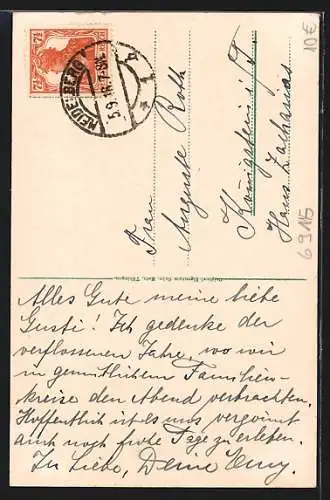 Alles Gute meine liebe
Gusti! Ich gedenke der
verflossenen Jahre, wo wir
in gemütlichem Familien-
kreise den Abend verbrachten.
Hoffentlich ist es uns vergönnt
auch noch frohe Tage zu erleben.
In Liebe, Deine Emy.
Frau
Auguste Roth
Königstein i/T.
Haus Zacharias
HEIDELBERG
5.9.16.7-8N.
* 1 b
7½ 7½
10€
6915